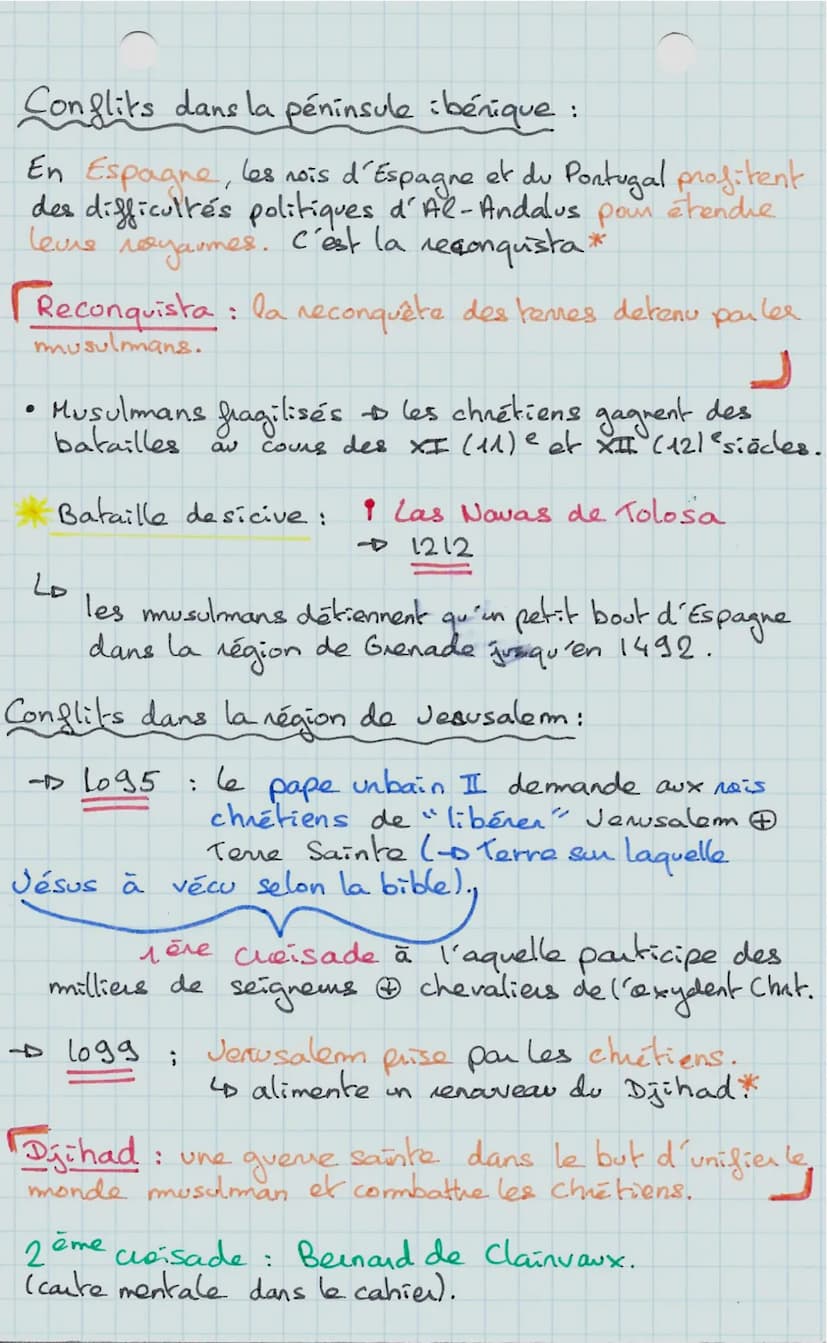 Conflits dans la péninsule ibérique :
En Espagne, les rois d'Espagne et du Portugal profitent
des difficultés politiques d'Al-Andalus pour étendre
leurs royaumes. C'est la reconquista*
Reconquista : la reconquête des terres detenu par les
musulmans.
• Musulmans fragilisés → les chrétiens gagnent des
batailles au cours des XI (11)e et XII (12)e siècles.
Bataille desicive : Las Navas de Tolosa
→ 1212
↳ les musulmans détiennent qu'un petit bout d'Espagne
dans la région de Grenade jusqu'en 1492.
Conflits dans la région de Jerusalem :
→ 1095 : le pape urbain II demande aux rois
chrétiens de "libérer" Jerusalem ⊕
Terre Sainte (→ Terre sur laquelle
Jésus à vécu selon la bible).
1ère croisade à l'aquelle participe des
milliers de seigneurs ⊕ chevaliers de l'oxydent Chrt.
→ 1099 : Jerusalem prise par les chrétiens.
↳ alimente un renouveau du Djihad*
Djihad : une guerre sainte dans le but d'unifier le
monde musulman et combattre les Chrétiens.
2ème croisade : Bernard de Clairvaux.
(carte mentale dans le cahier).